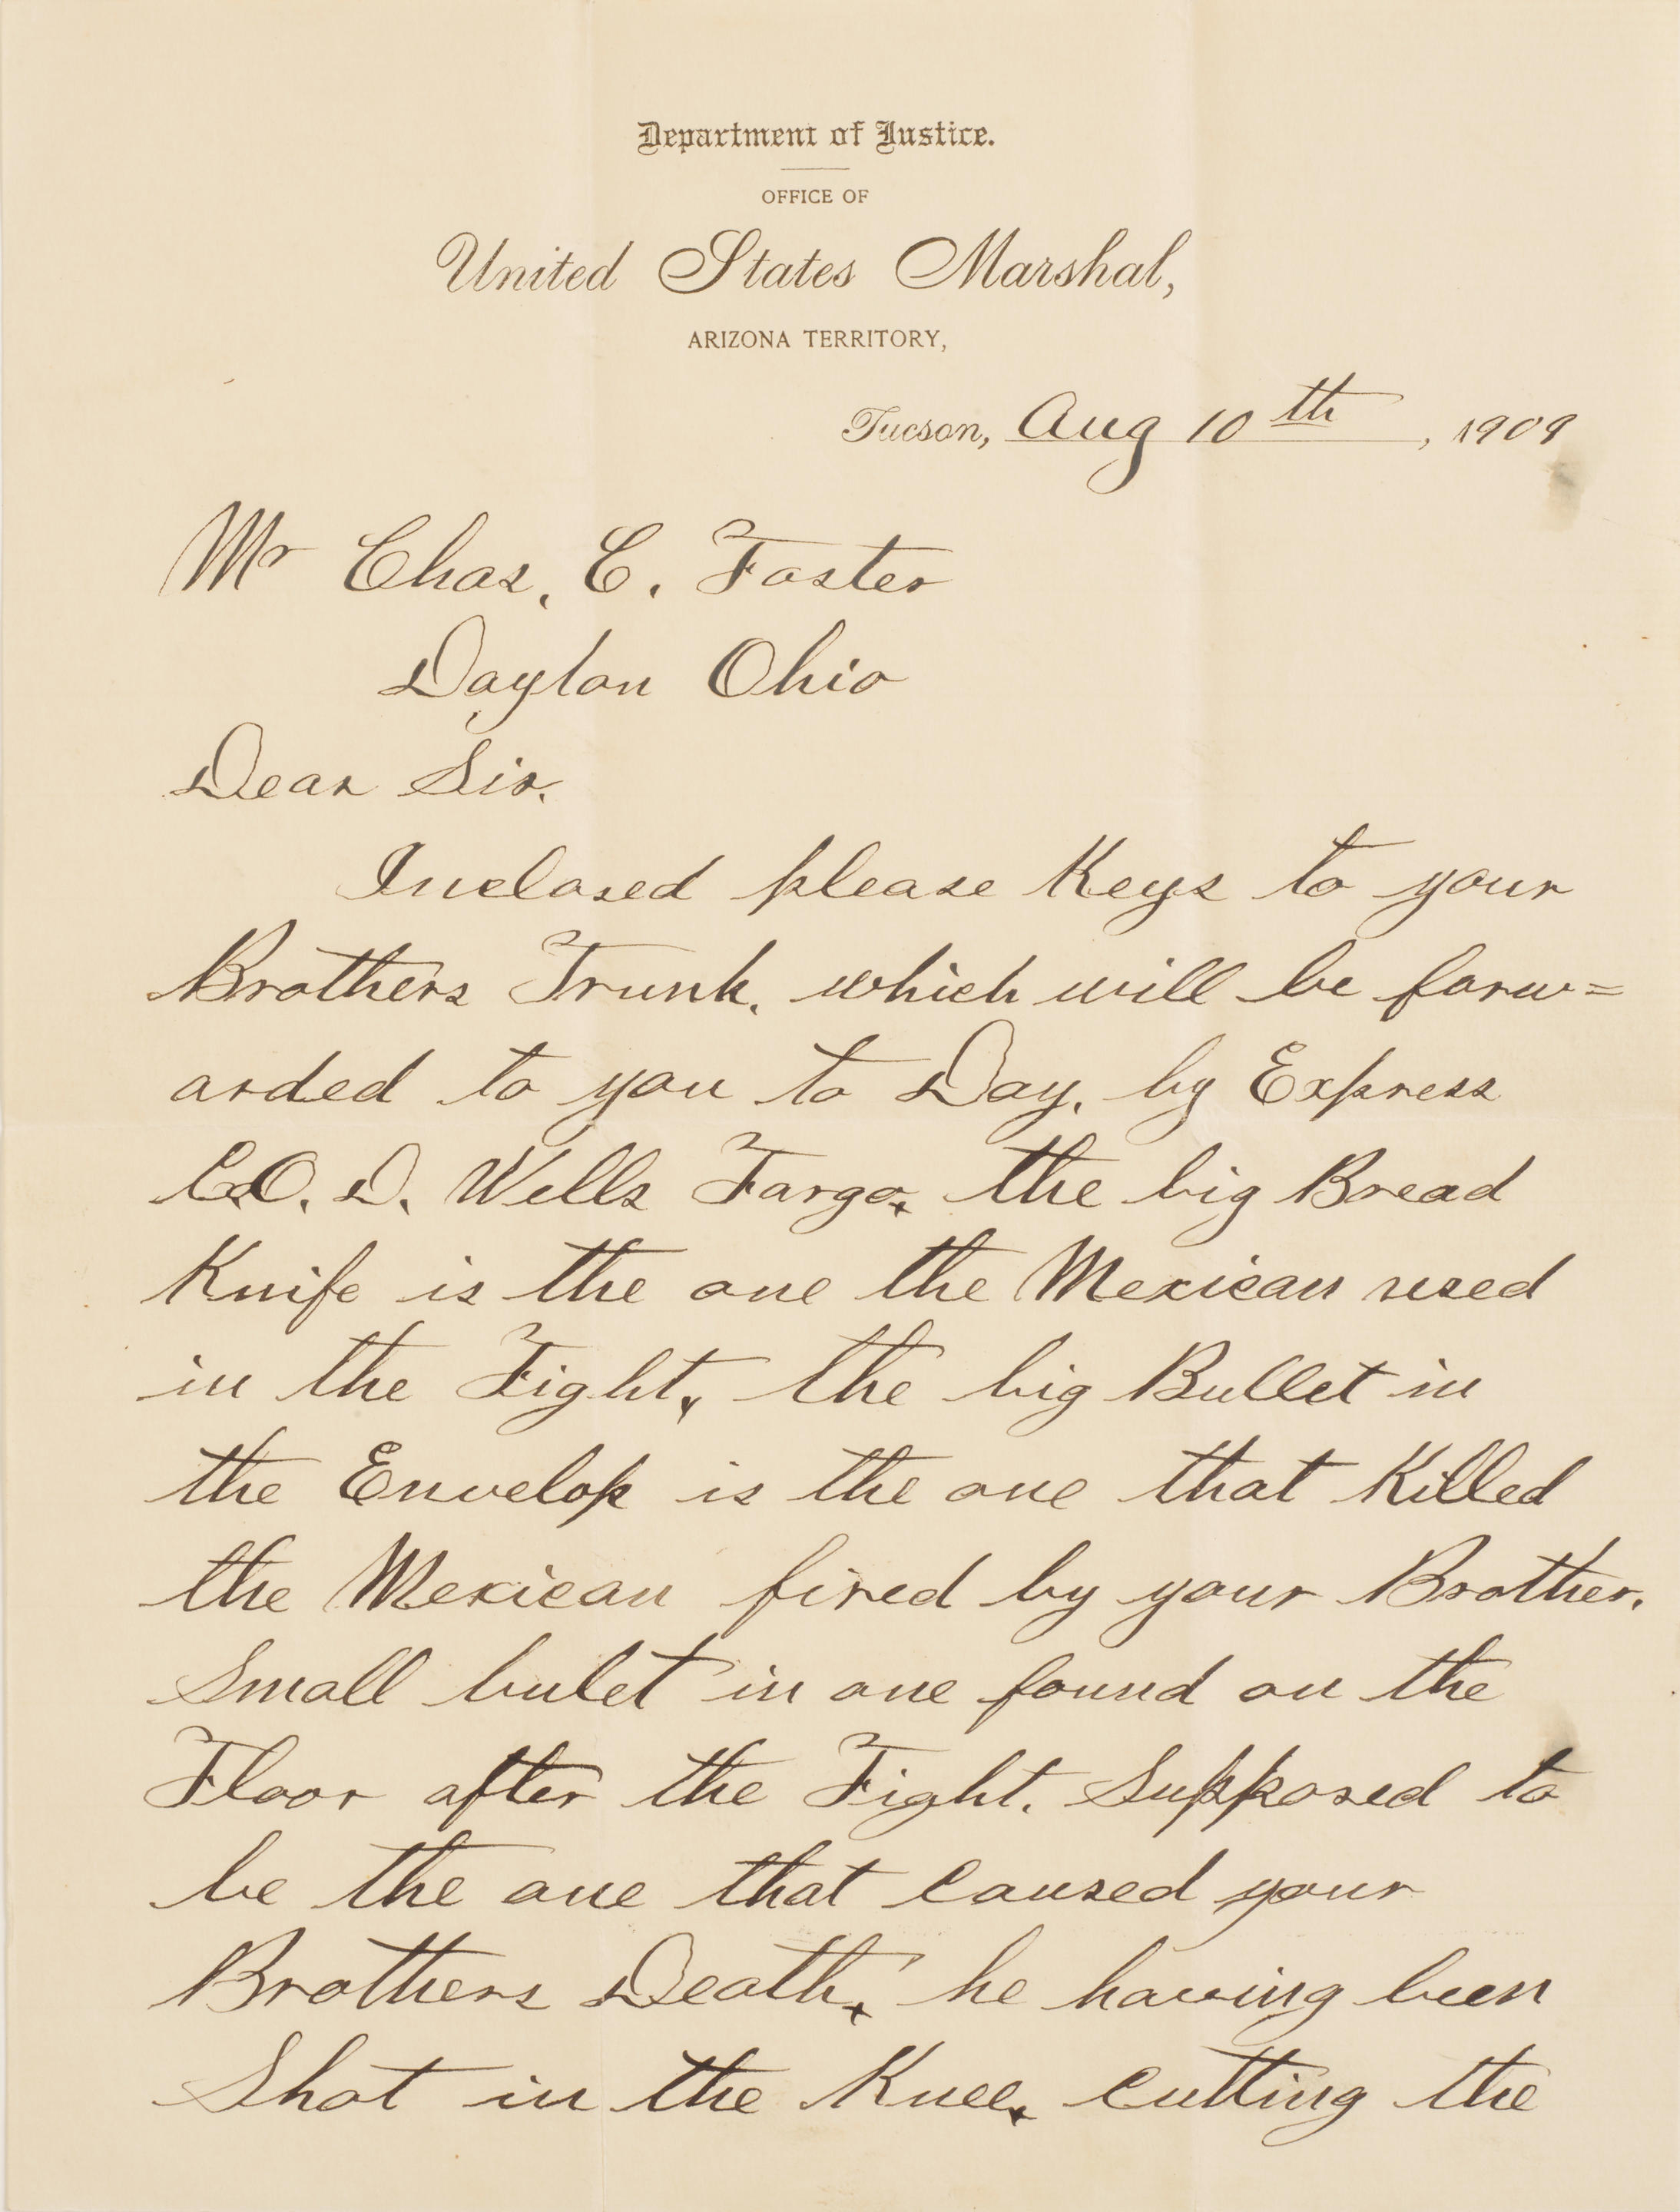 Department of Justice.
OFFICE OF
United States Marshal,
ARIZONA TERRITORY,
Tucson, Aug 10th, 1909
Mr Chas. C. Foster
Dayton Ohio
Dear Sir.
Inclosed please Keys to your
Brothers Trunk. which will be forw=
arded to you to Day. by Express
C.O. D. Wells Fargo. the big Bread
Knife is the one the Mexican used
in the Fight. the big Bullet in
the Envelop is the one that Killed
the Mexican fired by your Brother.
Small bulet in one found on the
Floor after the Fight. Supposed to
be the one that caused your
Brothers Death. he having been
Shot in the Knee. cutting the